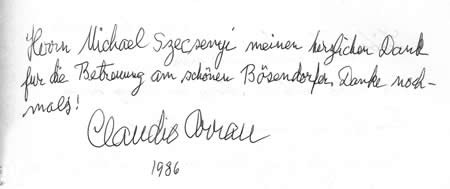 Herrn Michael Szecsenyi meinen herzlichen Dank
für die Betreuung am schönen Bösendorfer, Danke noch-
mals!
Claudio Arrau
1986